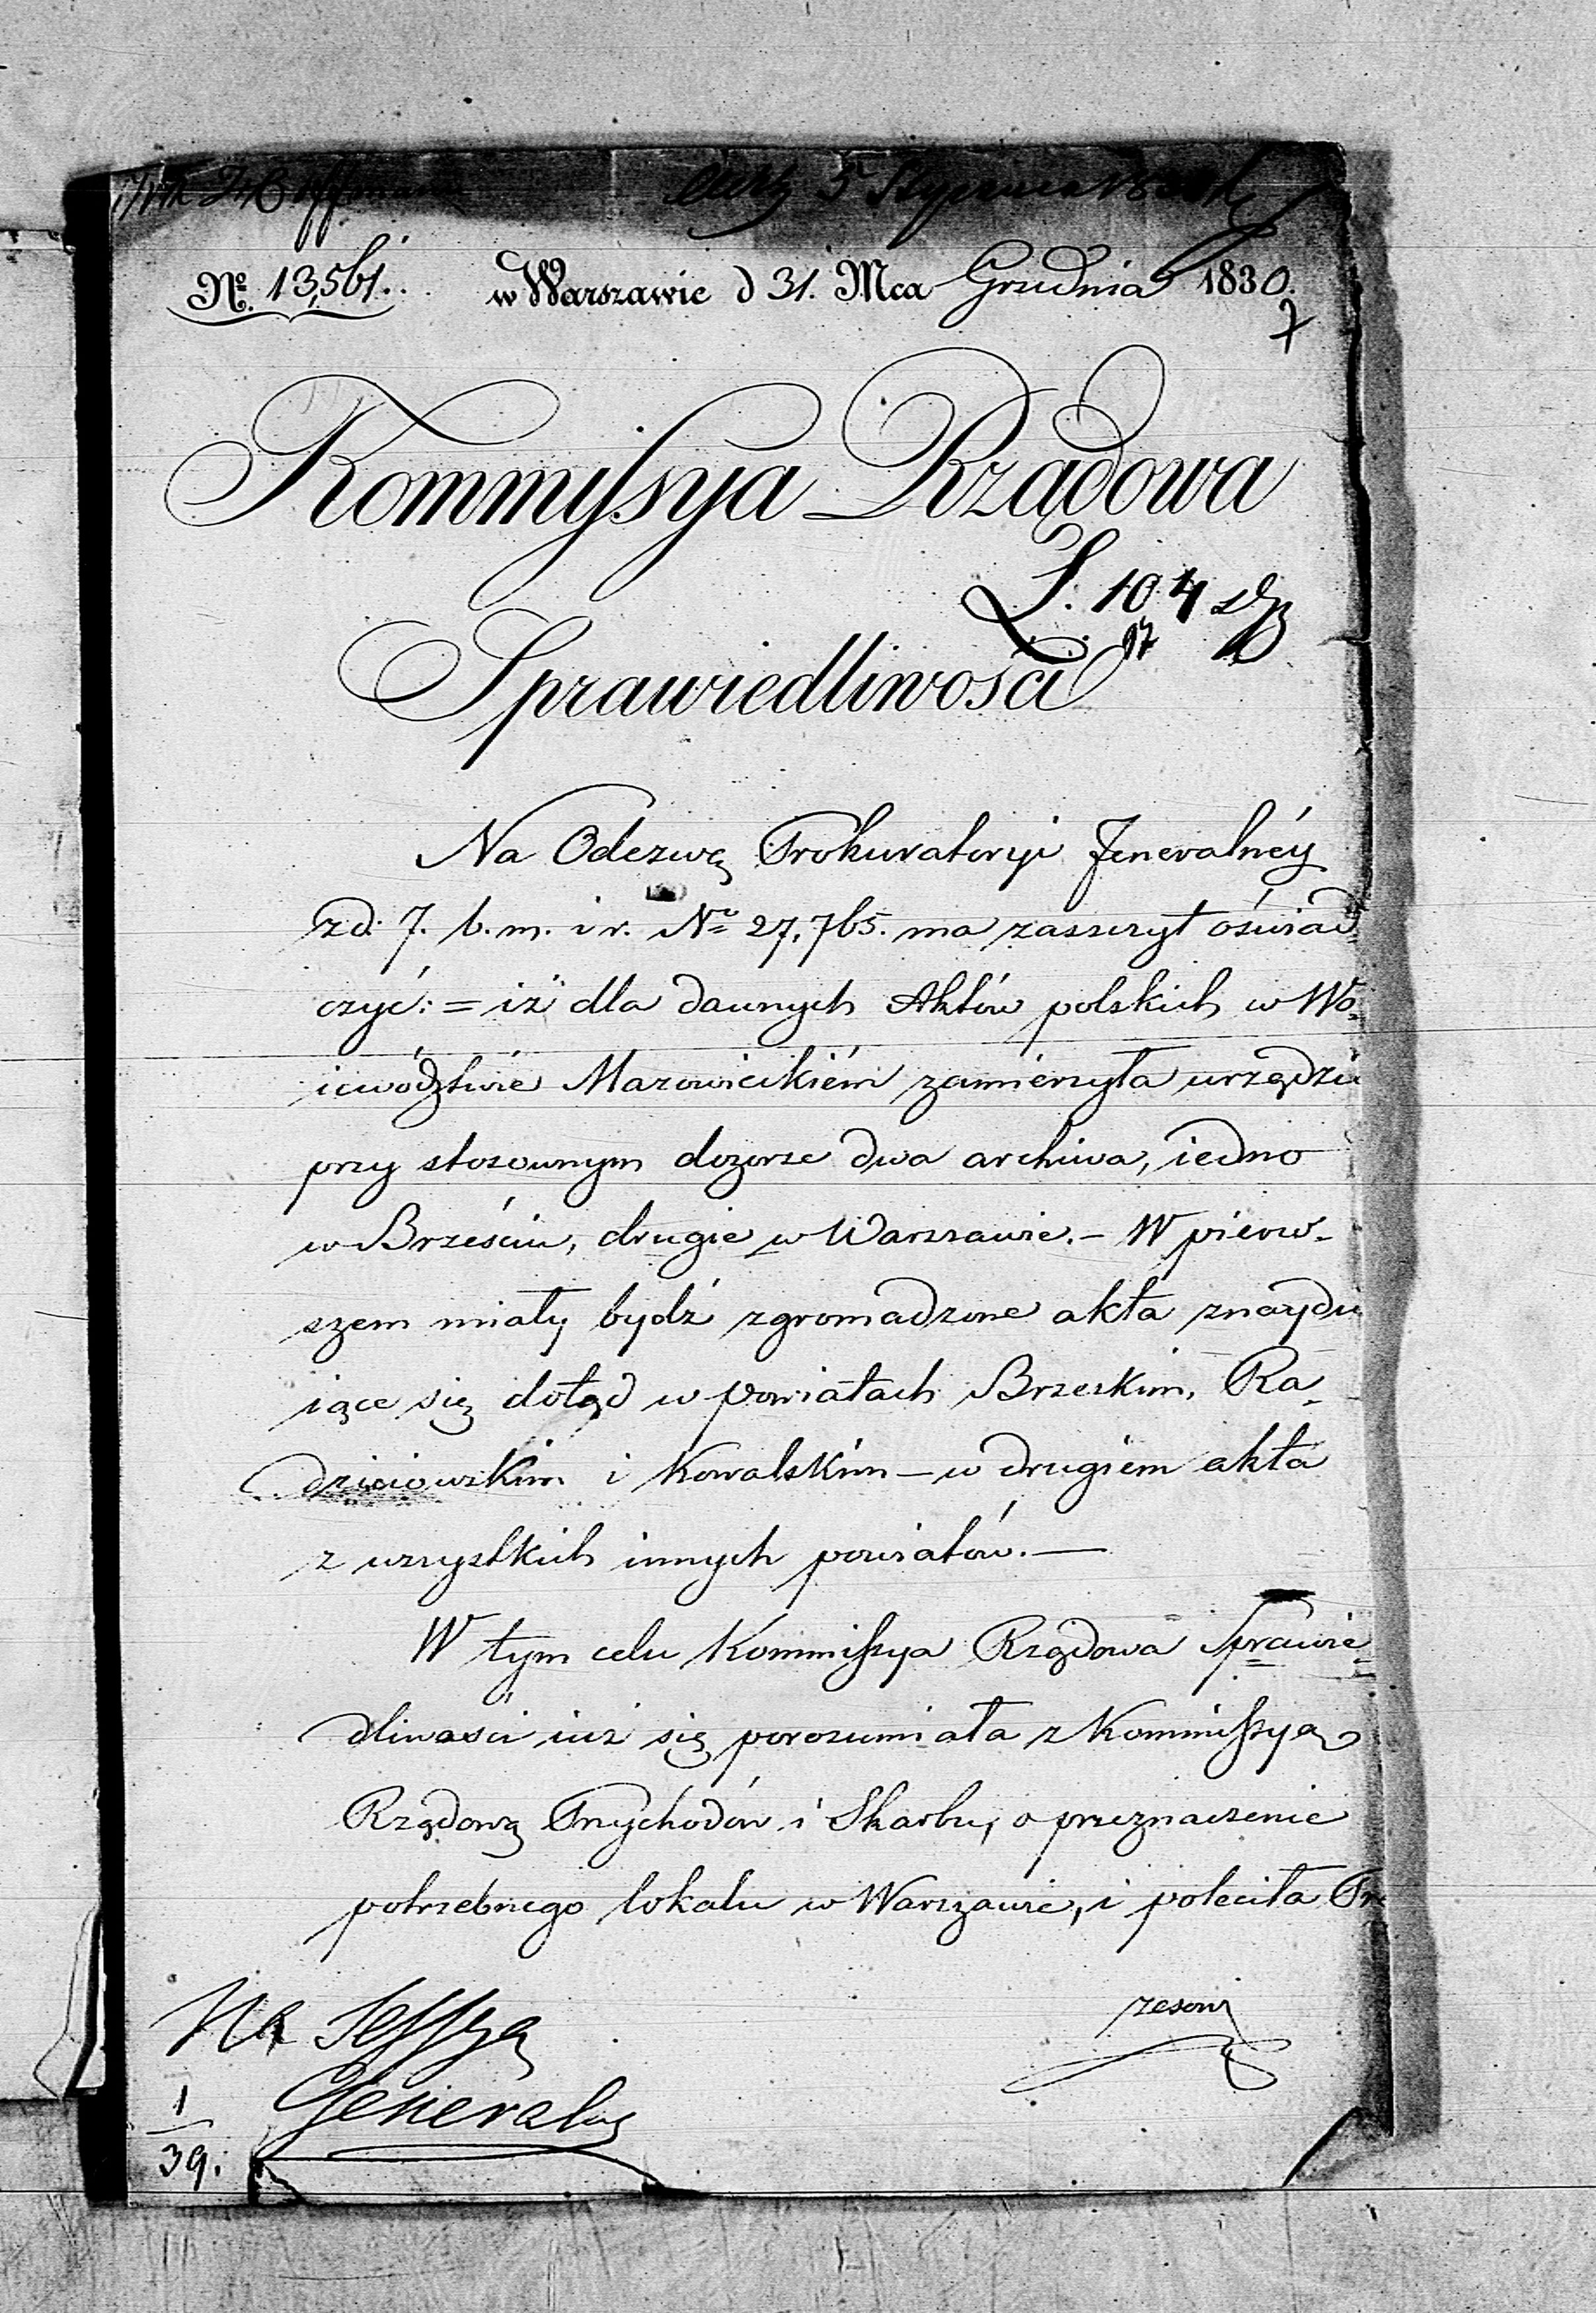 5 Stycznia
Nº 13,561.
w Warszawie d 31. Mca Grudnia 1830.
Kommyssya Rządowa
L. 104
97
Sprawiedliwości
Na Odezwę Prokuratoryi Jeneralnéy
z d: 7. b. m. i r. Nº 27,765. ma zaszczyt oświad=
czyć: = iż dla dawnych Aktów polskich w Wo=
iewództwie Mazowieckiém zamierzyła urządzić
przy stosownym dozorze dwa archiwa, iedno
w Brześciu, drugie w Warszawie. – W pierw-
szem miały bydź zgromadzone akta znaydu
iące się dotąd w powiatach Brzeskim, Ra=
dzieiowskim i Kowalskim – w drugiém akta
z wszystkich innych powiatów. —
W tym celu Kommissya Rządowa Sprawie=
dliwości iuż się porozumiała z Kommissyą
Rządową Przychodów i Skarbu, o przeznaczenie
potrzebnego lokalu w Warszawie, i poleciła Pre
zesowi
Na Sessyą
Generalną
1
39.